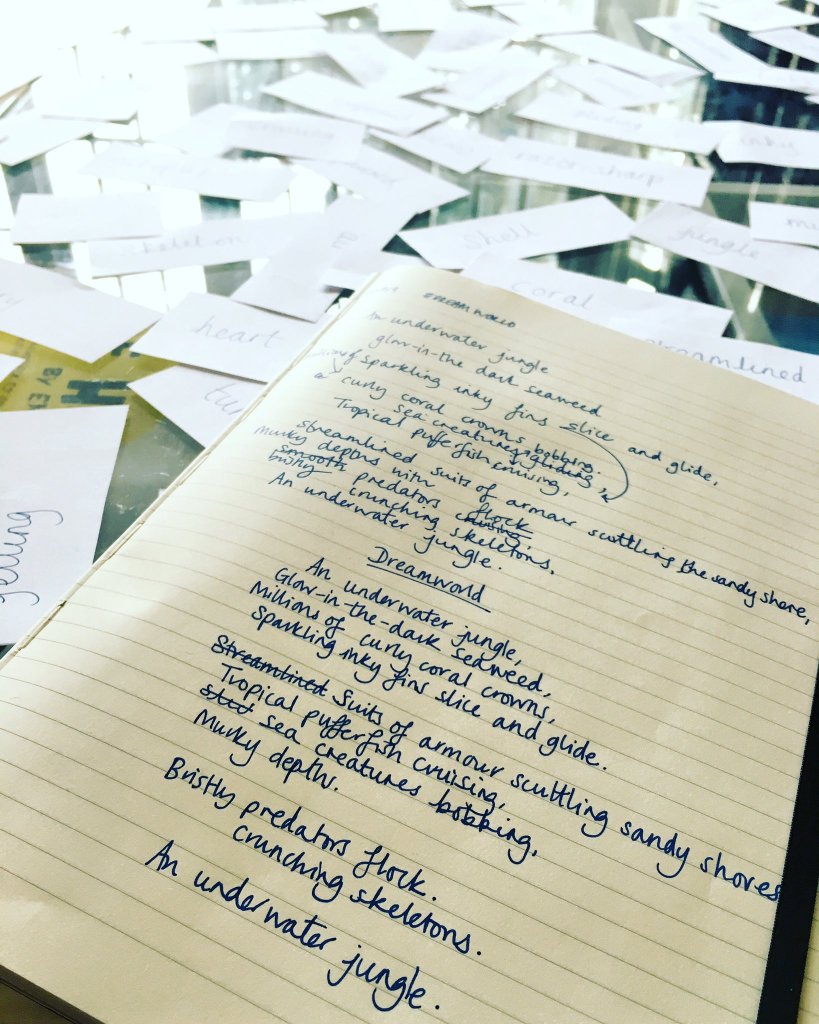 inky
razor-sharp
shell
jungle
skeleton
coral
heart
streamlined
yelling
DREAMWORLD
An underwater jungle
glow-in-the dark seaweed
sparkling inky fins slice and glide,
curly coral crowns bobbing,
sea creatures gliding,
Tropical pufferfish cruising,
streamlined suits of armour scuttling the sandy shore,
Murky depths with
smooth predators flock
bristly crunching skeletons.
An underwater jungle.
Dreamworld
An underwater jungle,
Glow-in-the-dark seaweed,
Millions of curly coral crowns,
Sparkling inky fins slice and glide.
Streamlined Suits of armour scuttling sandy shores
Tropical pufferfish cruising,
sea creatures bobbing,
Murky depths.
Bristly predators flock.
crunching skeletons.
An underwater jungle.